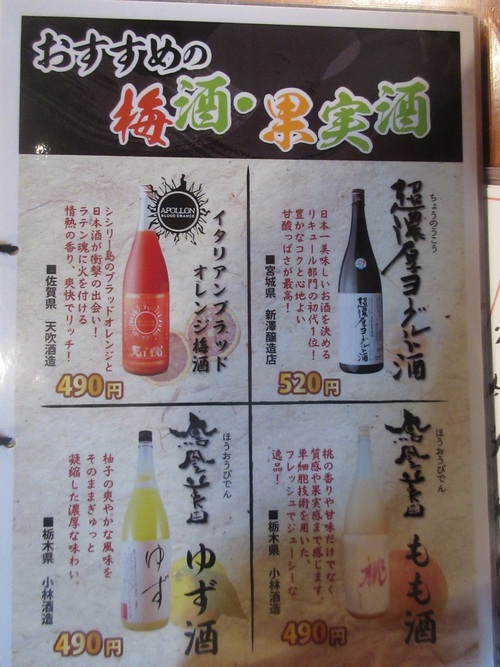 おすすめの
梅酒・果実酒
ちょうのうこう
超濃厚ヨーグルト酒
日本一美味しいお酒を決める
リキュール部門の初代1位!
豊かなコクと心地よい
甘酸っぱさが最高!
■宮城県 新澤醸造店
520円
超濃厚ヨーグルト酒
APOLLON
BLOOD ORANGE
イタリアンブラッド
オレンジ梅酒
シシリー島のブラッドオレンジと
日本酒が衝撃の出会い!
ラテン魂に火を付ける
情熱の香り、爽快でリッチ!
■佐賀県 天吹酒造
490円
ほうおうびでん
鳳凰美田
もも酒
桃の香りや甘味だけでなく
質感や果実感まで感じます。
単細胞技術を用いた、
フレッシュでジューシーな
逸品!
■栃木県 小林酒造
490円
桃
ほうおうびでん
鳳凰美田
ゆず酒
柚子の爽やかな風味を
そのままぎゅっと
凝縮した濃厚な味わい。
■栃木県 小林酒造
490円
ゆず